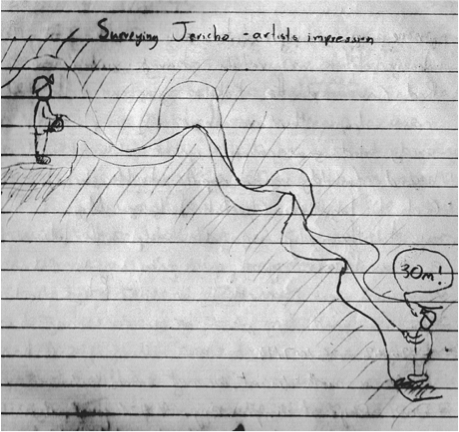 Surveying Jericho - artists impression
30m!